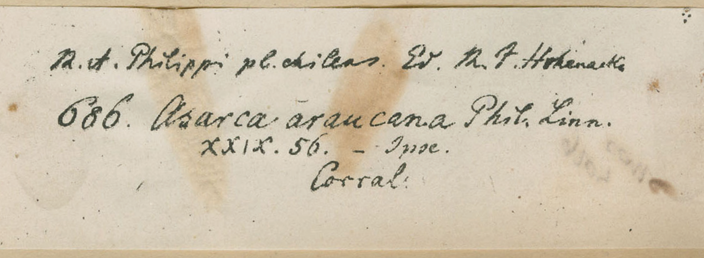 R. A. Philippi pl. chilens. Ed. R. F. Hohenacker
686. Asarca araucana Phil. Linn.
XXIX. 56. – Ipse.
Corral.